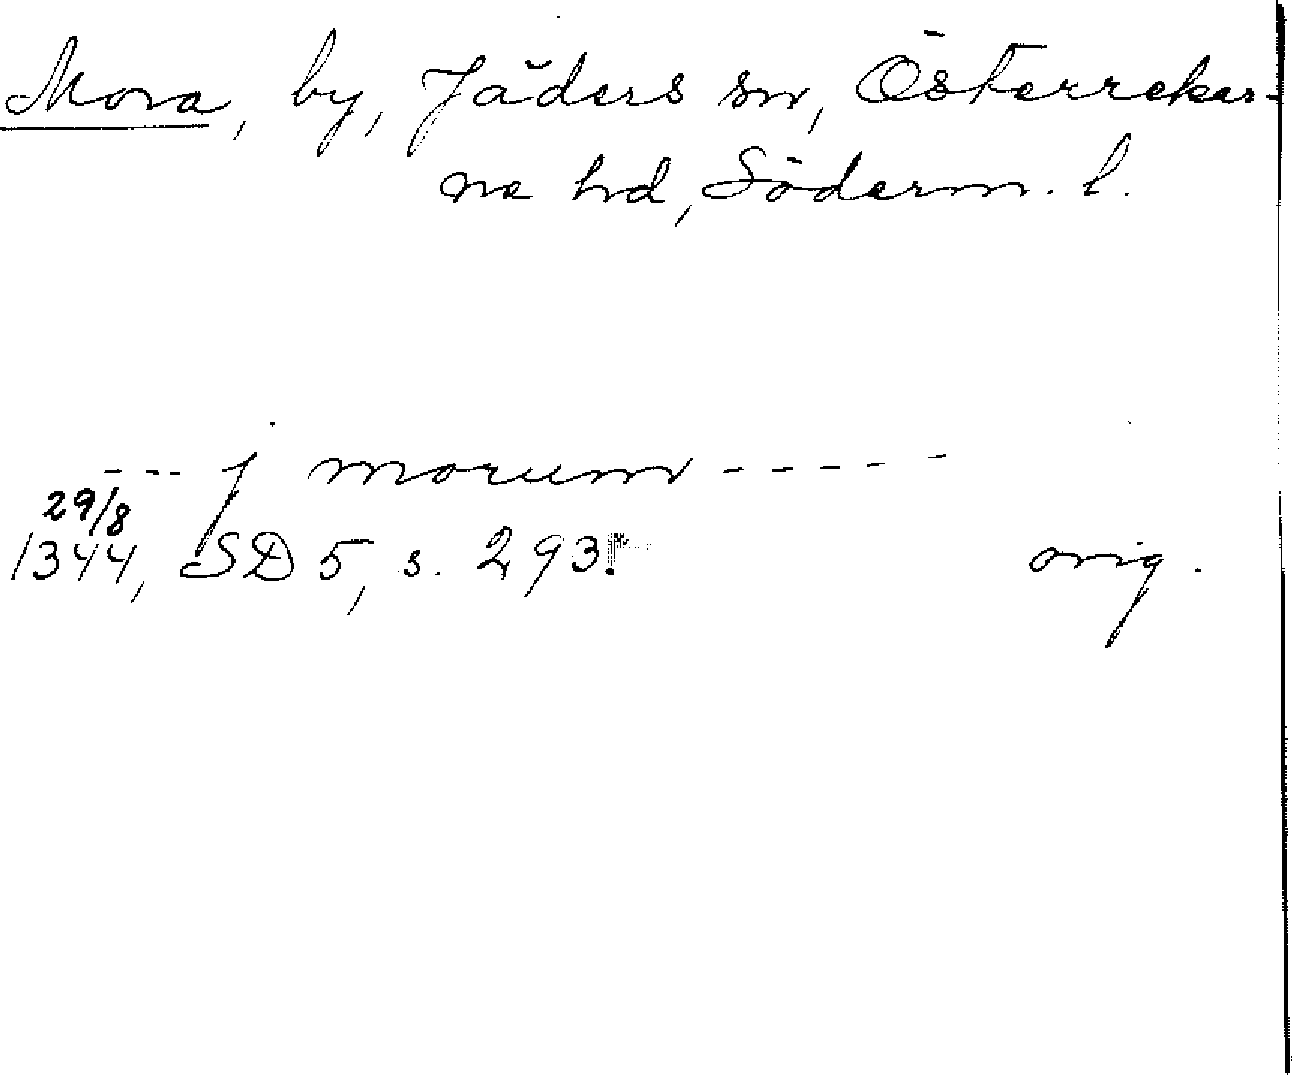 Mora, by, Jäders sn, Österrekar-
ne hd, Söderm. l.
--- j morum -----
29/8
1344, SD 5, s. 293.
orig.